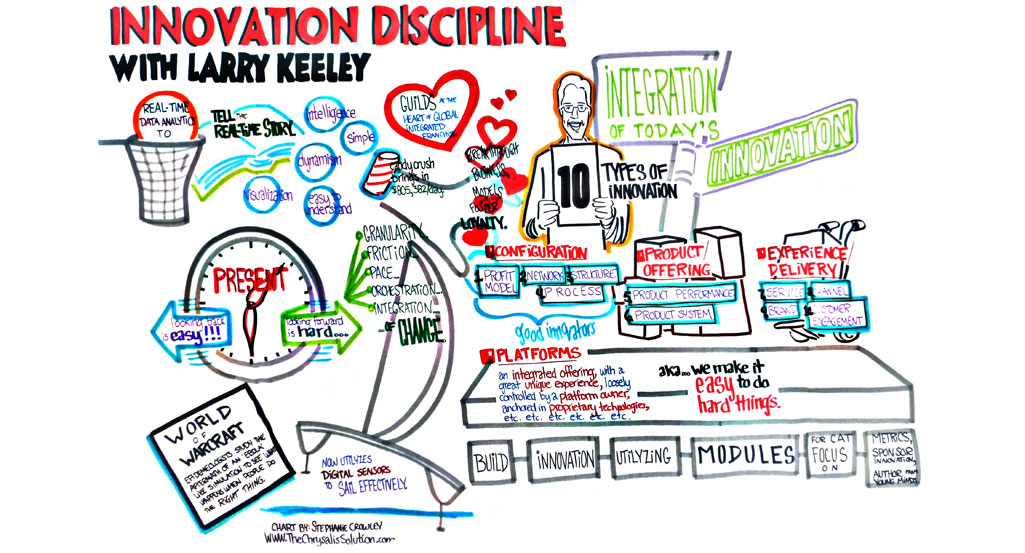 INNOVATION DISCIPLINE
WITH LARRY KEELEY
REAL-TIME
DATA ANALYTICS
TO
TELL THE
REAL-TIME STORY.
intelligence
simple
dynamism
Visualization
easy to
understand
GUILDS at the
HEART of GLOBAL
INTEGRATED
FRANCHISE
candycrush
brings in
BREAKTHROUGH
BUSINESS
MODELS
FOSTER
LOYALTY.
10
TYPES OF
INNOVATION
INTEGRATION
OF TODAY'S
INNOVATION
PRESENT
looking back
is easy!!!
looking forward
is hard...
GRANULARITY
FRICTION
PACE...
ORCHESTRATION...
INTEGRATION...
OF CHANGE
CONFIGURATION
1 PROFIT
MODEL
2 NETWORK
3 STRUCTURE
4 PROCESS
good innovators
PRODUCT/
OFFERING
5 PRODUCT PERFORMANCE
6 PRODUCT SYSTEM
EXPERIENCE/
DELIVERY
SERVICE
CHANNEL
BRAND
CUSTOMER
ENGAGEMENT
PLATFORMS
an integrated offering, with a
great unique experience, loosely
controlled by a platform owner,
anchored in proprietary technologies,
etc. etc. etc. etc. etc. etc.
aka... we make it
easy to do
hard things.
WORLD
OF
WARCRAFT
EPIDEMIOLOGISTS STUDY THE
AFTERMATH OF AN "EBOLA"
LIKE SIMULATION TO SEE WHAT
HAPPENS WHEN PEOPLE DO
THE RIGHT THING.
NOW UTILYZIES
DIGITAL SENSORS
TO SAIL EFFECTIVELY.
BUILD
INNOVATION
UTILYZING
MODULES
FOR CAT
FOCUS
ON
METRICS,
SPONSOR
INNOVATION,
AUTHOR from
YOUNG MINDS
CHART BY: STEPHANIE CROWLEY
WWW.TheChrysalisSolution.com